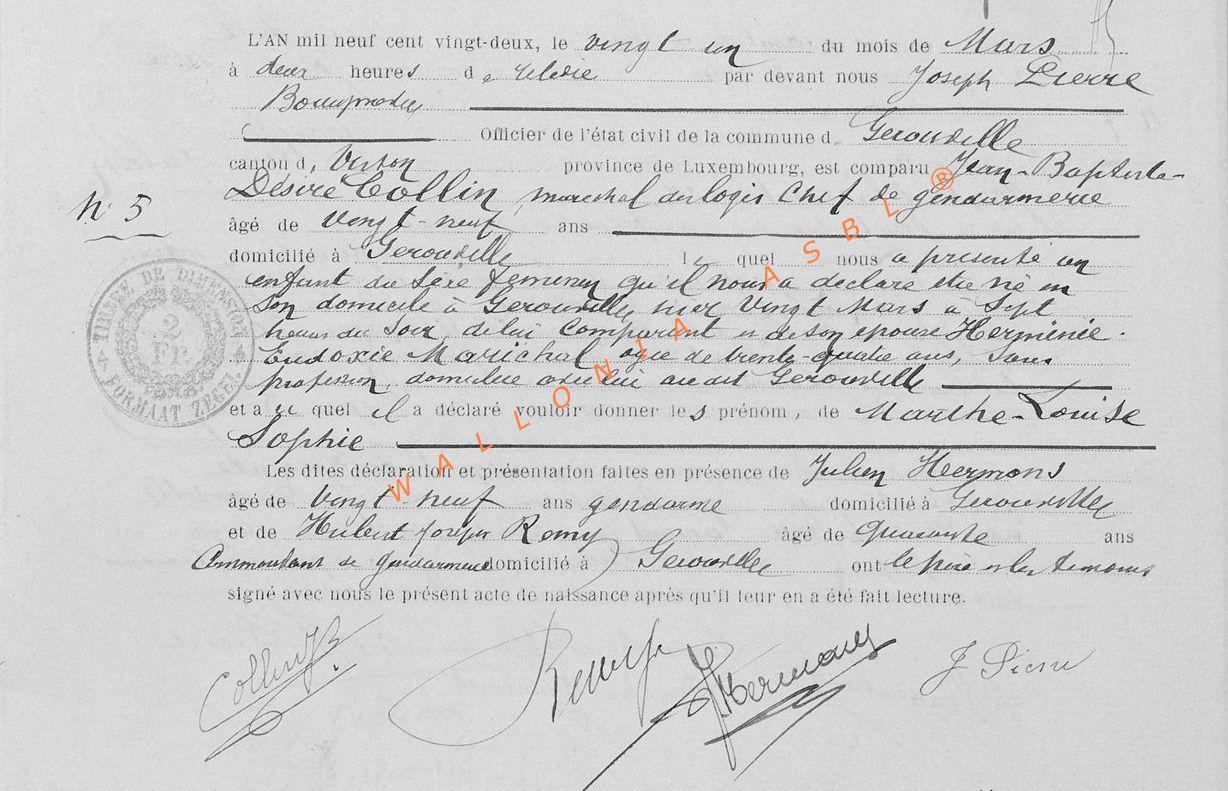 L'AN mil neuf cent vingt-deux, le vingt un du mois de Mars
à deux heures de relevée par devant nous Joseph Pierre
Bourgmestre
Officier de l'état civil de la commune d. Gerouville
canton d. Virton province de Luxembourg, est comparu Jean-Baptiste-
Désiré Collin maréchal des logis Chef de gendarmerie
N° 5
âgé de vingt-neuf ans
domicilié à Gerouville le quel nous a présenté un
enfant du sexe féminin qu'il nous a déclaré être né en
son domicile à Gerouville, hier vingt Mars à sept
heures du soir, de lui Comparant et de son épouse Herminie-
Eudoxie Marichal agée de trente-quatre ans, sans
profession, domiciliée avec lui audit Gerouville
et a u quel il a déclaré vouloir donner les prénom, de Marthe-Louise
Sophie
Les dites déclaration et présentation faites en présence de Julien Hermans
âgé de vingt-neuf ans gendarme domicilié à Gerouville
et de Hubert Joseph Remy âgé de quarante ans
Commandant de gendarmerie domicilié à Gerouville ont le père et les témoins
signé avec nous le présent acte de naissance après qu'il leur en a été fait lecture.
TIMBRE DE DIMENSION
2
Fr.
FORMAAT ZEGEL
WALLONIA ASBL ®
Collin JB
Remy
J Hermans
J Pierre